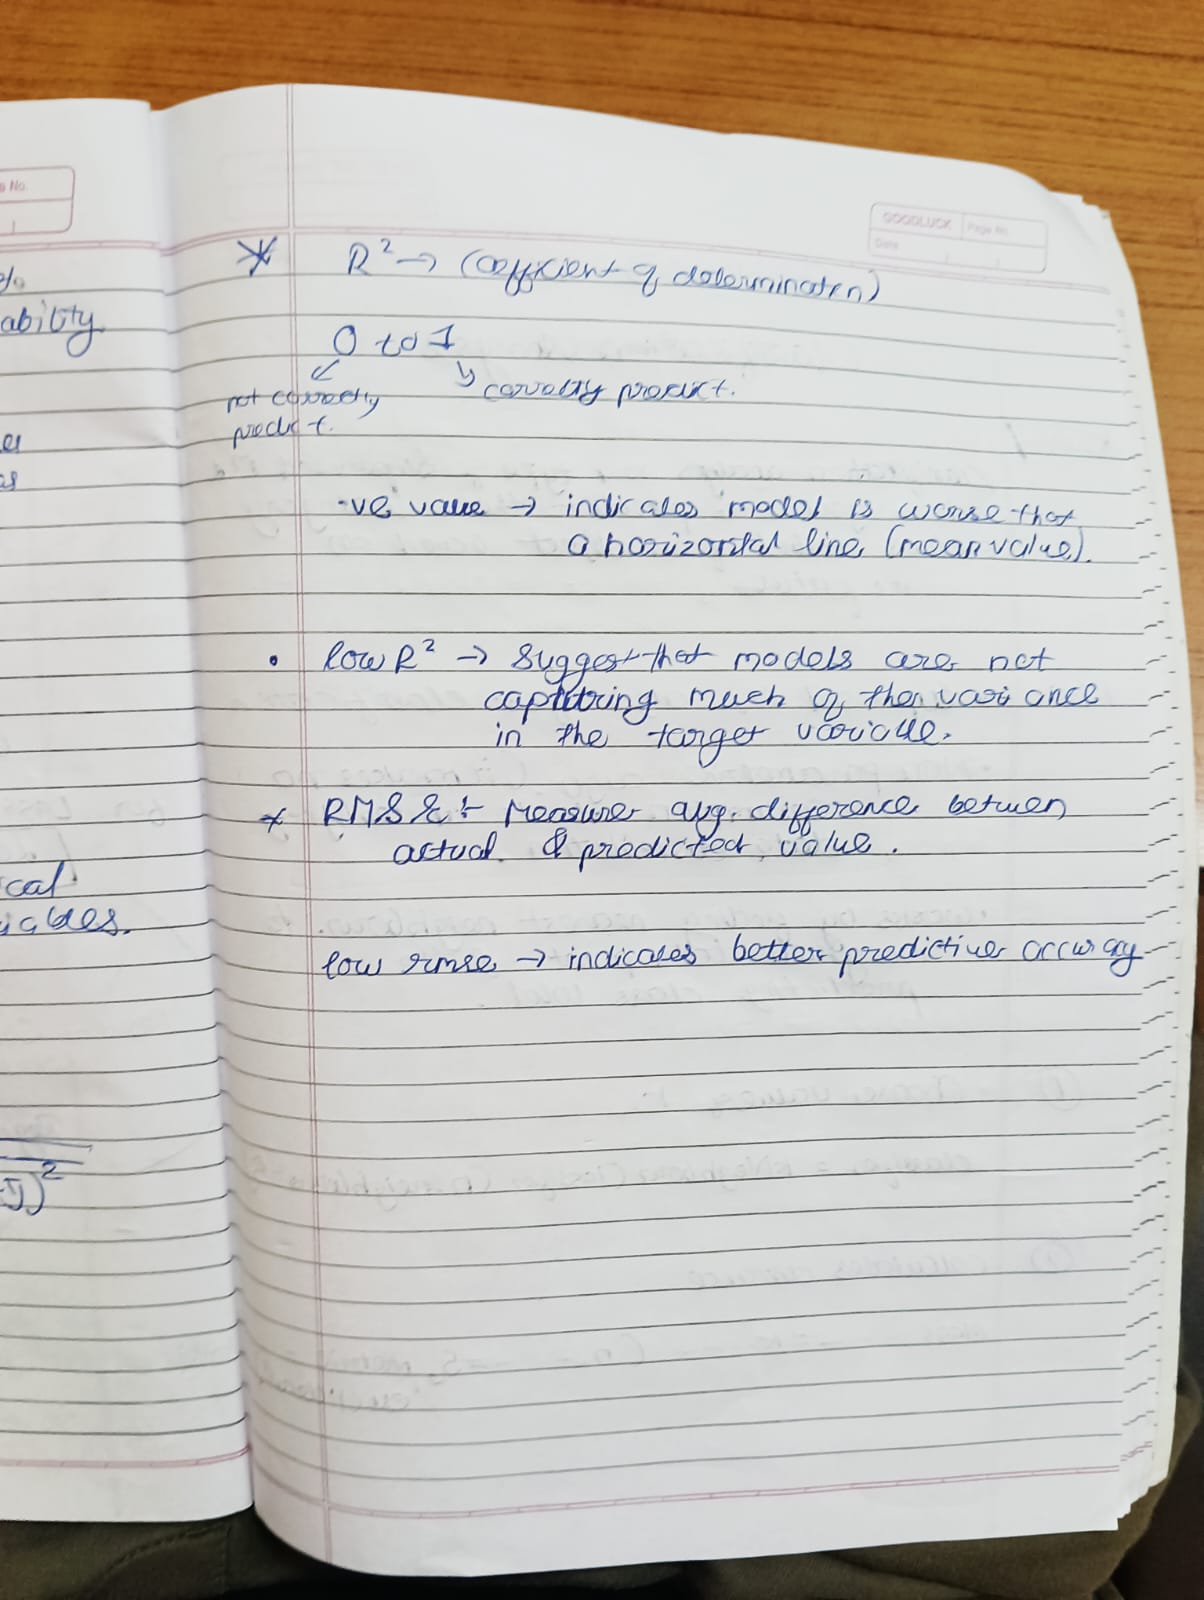 e No.
GOODLUCK Page No.
Date
ability
cal
iables.
R² → (coefficient of determination)
0 to 1
not correctly
predict.
correctly predict.
-ve value → indicates model is worse that
a horizontal line (mean value).
• low R² → suggest that models are not
capturing much of the variance
in the target variable.
* RMSE :- Measure avg. difference between
actual & predicted value.
low rmse → indicates better predictive accuracy